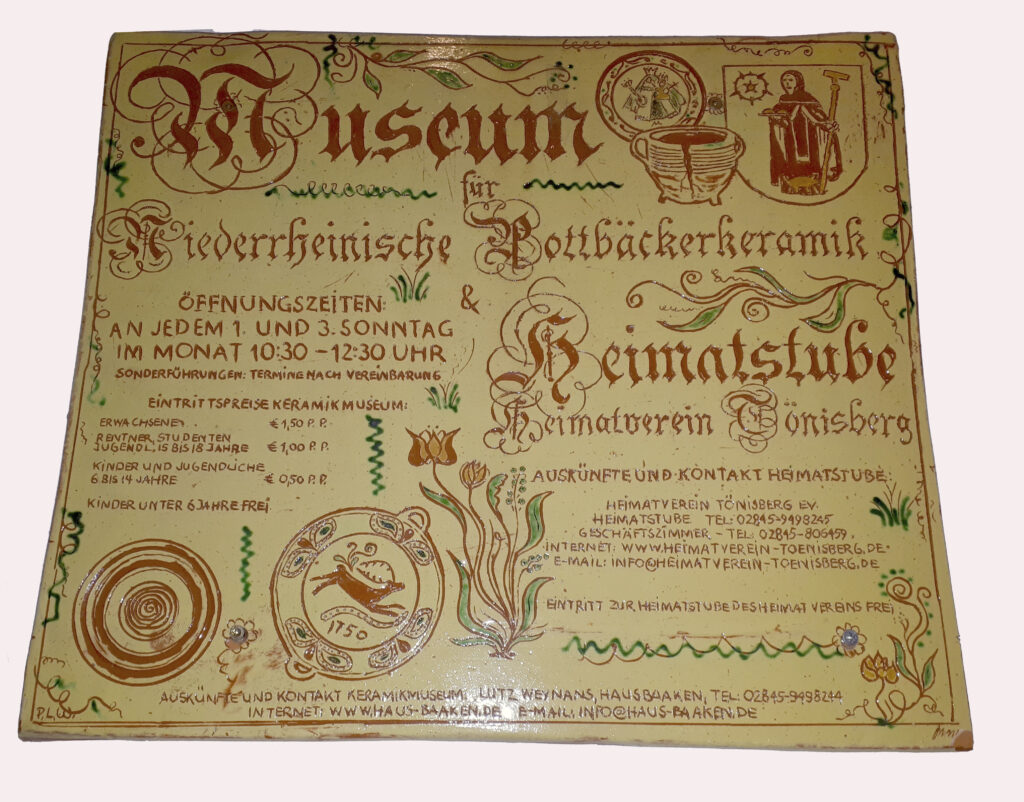 Museum
für
Niederrheinische Pottbäckerkeramik
&
Heimatstube
Heimatverein Tönisberg
ÖFFNUNGSZEITEN:
AN JEDEM 1. UND 3. SONNTAG
IM MONAT 10:30 – 12:30 UHR
SONDERFÜHRUNGEN: TERMINE NACH VEREINBARUNG
EINTRITTSPREISE KERAMIKMUSEUM:
ERWACHSENE: € 1,50 P. P.
RENTNER, STUDENTEN
JUGENDL, 15 BIS 18 JAHRE € 1,00 P. P.
KINDER UND JUGENDLICHE
6 BIS 14 JAHRE € 0,50 P. P.
KINDER UNTER 6 JAHRE FREI
AUSKÜNFTE UND KONTAKT HEIMATSTUBE:
HEIMATVEREIN TÖNISBERG EV.
HEIMATSTUBE TEL: 02845-9498245
GESCHÄFTSZIMMER - TEL: 02845-806459
INTERNET: WWW.HEIMATVEREIN-TOENISBERG.DE
E-MAIL: INFO@HEIMATVEREIN-TOENISBERG.DE
EINTRITT ZUR HEIMATSTUBE DES HEIMATVEREINS FREI
1750
AUSKÜNFTE UND KONTAKT KERAMIKMUSEUM: LUTZ WEYNANS, HAUS BAAKEN, TEL: 02845-9498244
INTERNET: WWW.HAUS-BAAKEN.DE E-MAIL: INFO@HAUS-BAAKEN.DE
P.L.W.